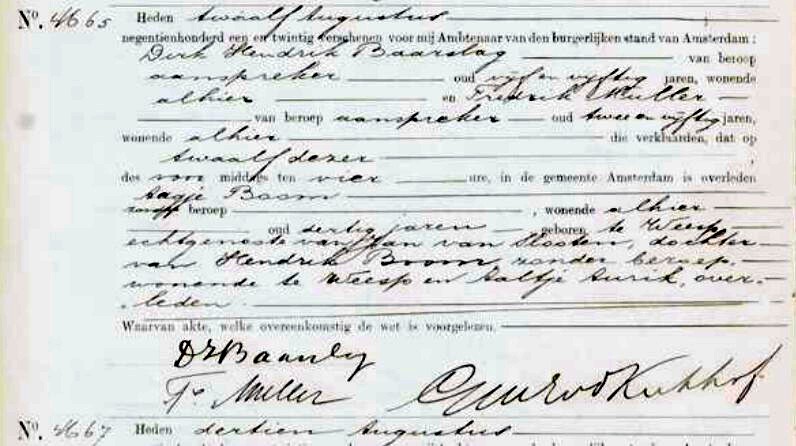 No. 4665 Heden twaalf Augustus
negentienhonderd een en twintig verschenen voor mij Ambtenaar van den burgerlijken stand van Amsterdam:
Dirk Hendrik Baarslag van beroep
aanspreker oud vijf en vijftig jaren, wonende
alhier en Fredrik Muller
van beroep aanspreker oud twee en vijftig jaren,
wonende alhier die verklaarden, dat op
twaalf dezer,
des voor middags ten vier ure, in de gemeente Amsterdam is overleden
Aagje Boom
zonder beroep, wonende alhier
oud dertig jaren geboren te Weesp
echtgenoote van Jan van Slooten, dochter
van Hendrik Boom zonder beroep,
wonende te Weesp en Aaltje Aurik, over-
leden.
Waarvan akte, welke overeenkomstig de wet is voorgelezen.
F. Muller
No. 4667 Heden dertien Augustus